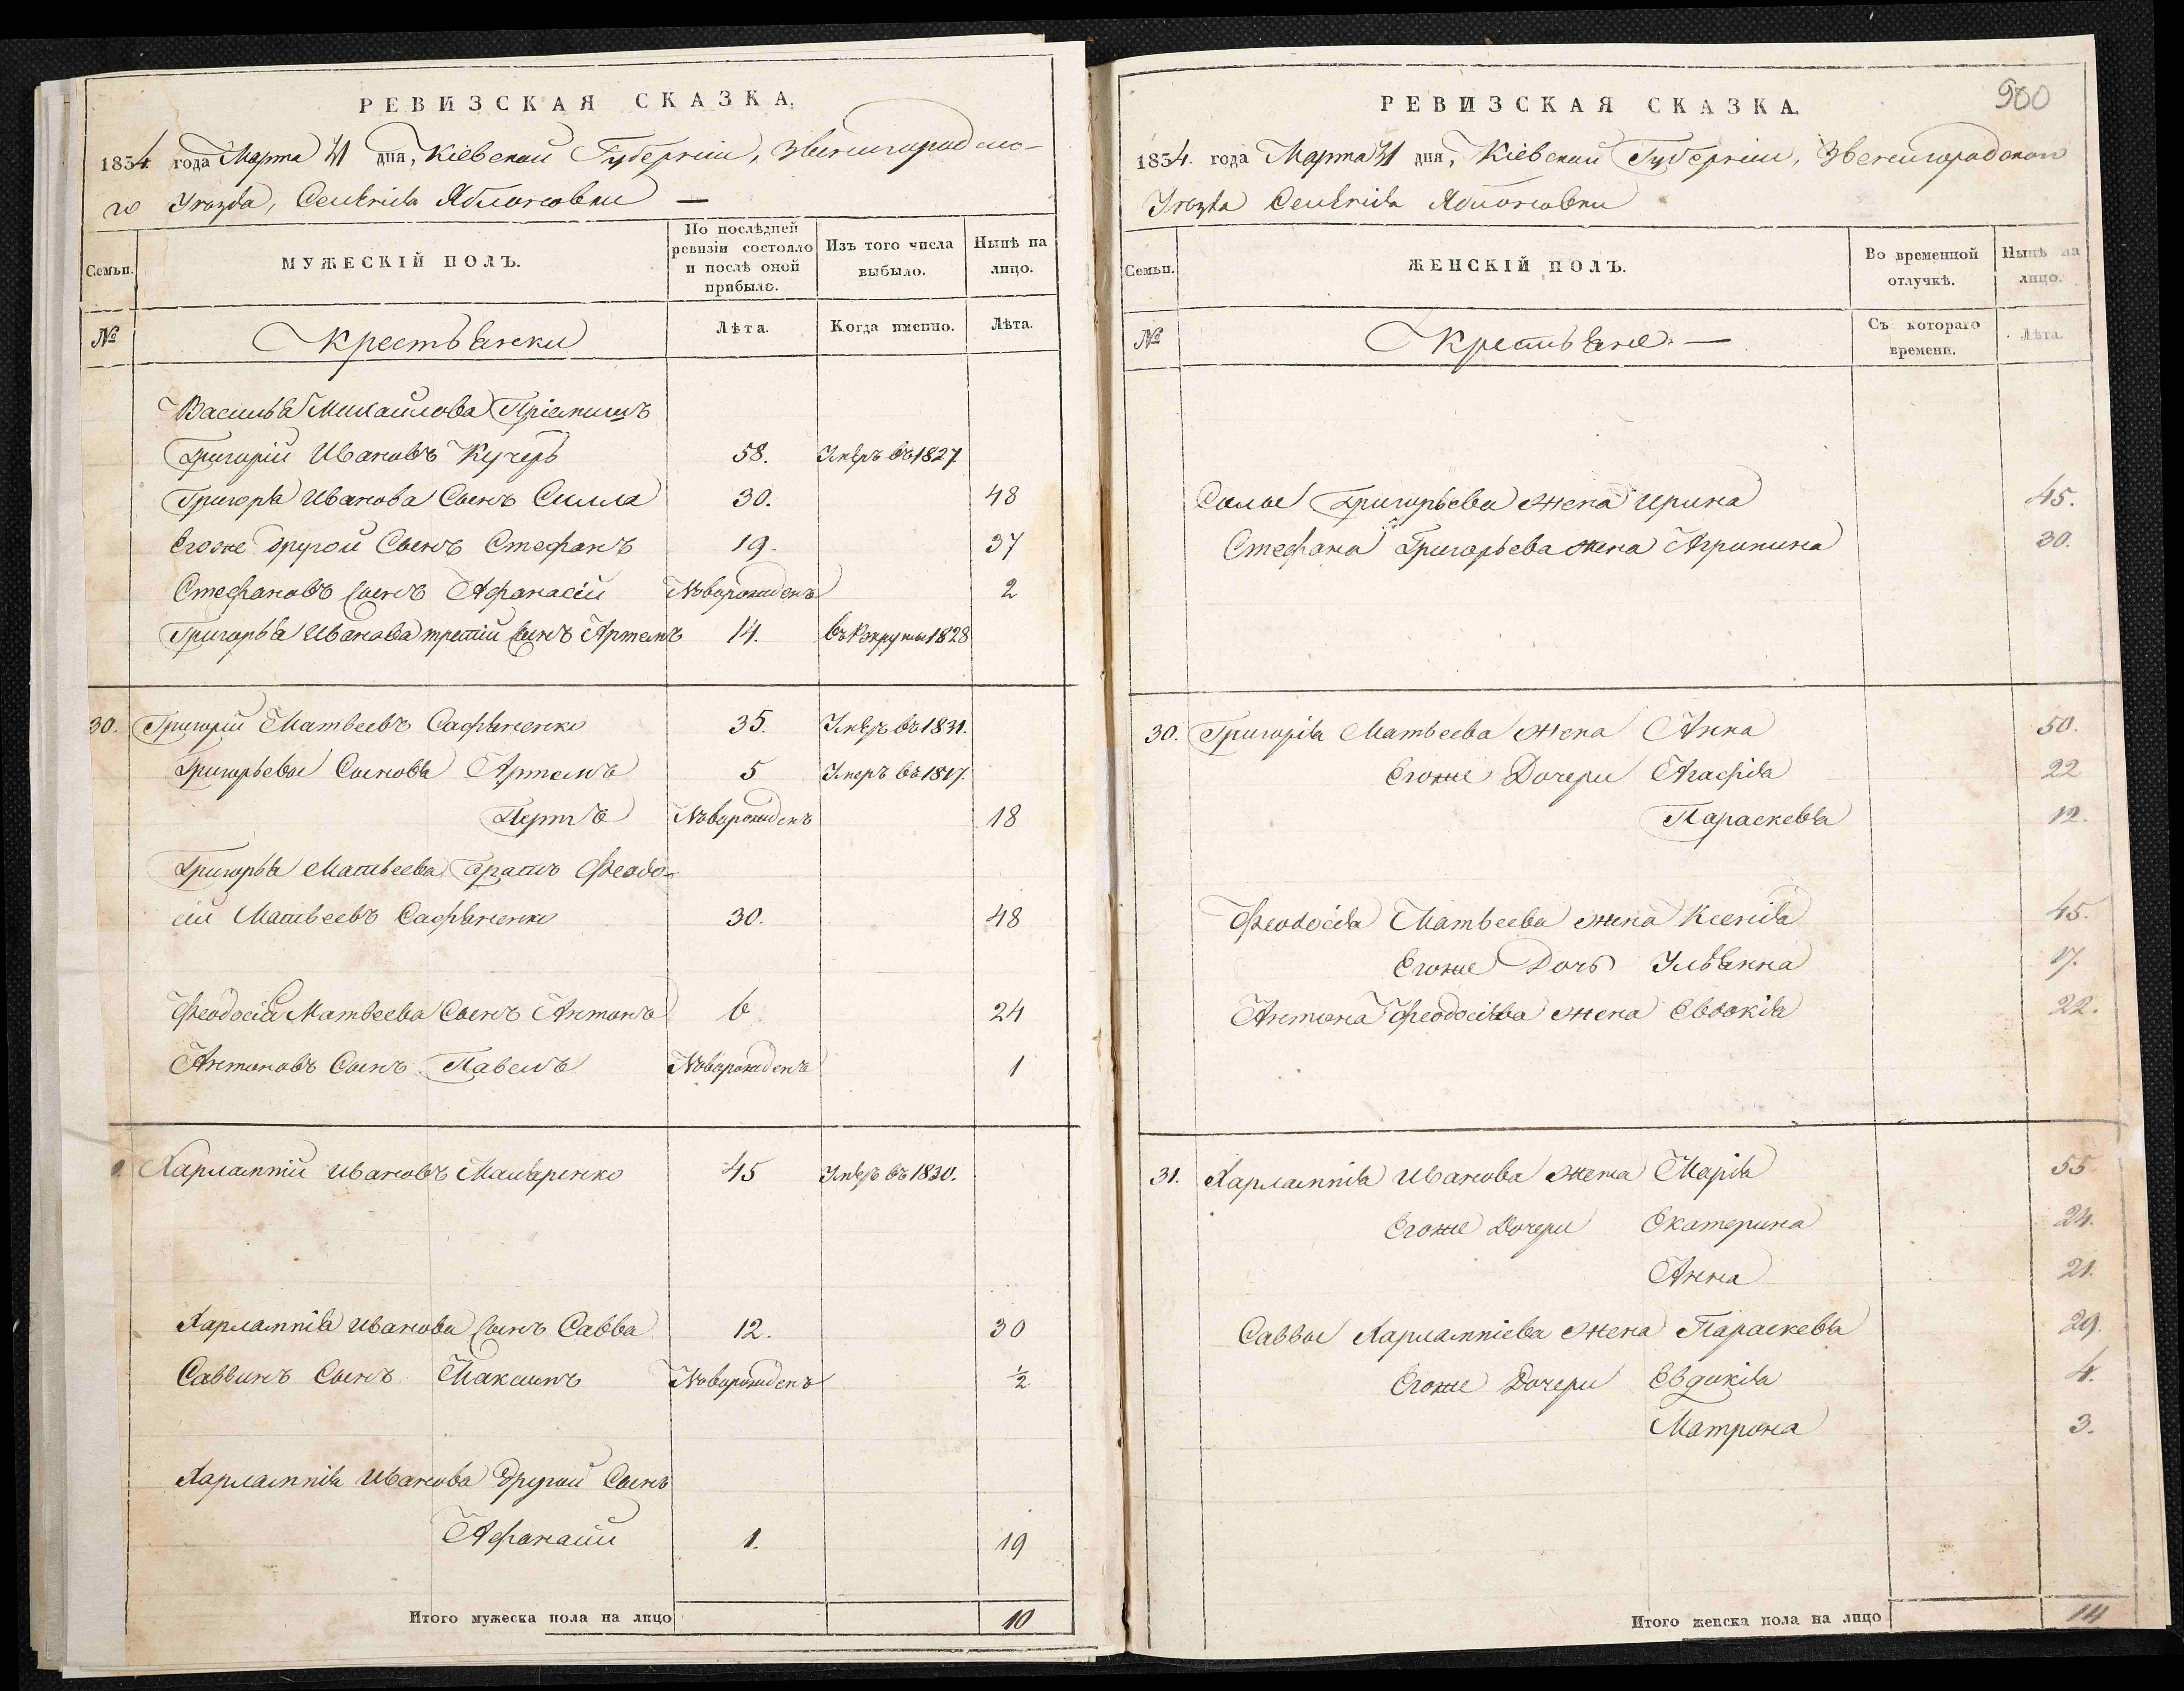 РЕВИЗСКАЯ СКАЗКА.
1834 года Марта 31 дня, Кіевской Губерніи, Звенигородска-
го Уезда, Селенія Яблоновки —
Семьи.
МУЖЕСКІЙ ПОЛЪ.
По послѣдней ревизіи состояло и послѣ оной прибыло.
Изъ того числа выбыло.
Нынѣ на лицо.
№
Крестьянки
Лѣта.
Когда именно.
Лѣта.
Василья Михайлова Пріемышъ
Григорій Ивановъ Кучеръ 58. Умеръ въ 1827
Григорья Иванова Сынъ Силла 30. 48
Егоже другой Сынъ Стефанъ 19. 37
Стефановъ Сынъ Афанасій Новорожденъ 2
Григорья Иванова третій Сынъ Артемъ 14. въ Рэкруты 1828
30. Григорій Матвеевъ Сафяненко 35. Умеръ въ 1831.
Григорьевы Сыновья Артемъ 5 Умеръ въ 1817.
Петръ Новорожденъ 18
Григорья Матвеева братъ Феодо-
сій Матвеевъ Сафяненко 30. 48
Феодосія Матвеева Сынъ Антонъ 6 24
Антоновъ Сынъ Павелъ Новорожденъ 1
Харлампій Ивановъ Маляренко 45 Умеръ въ 1830.
Харлампія Иванова Сынъ Савва 12. 30
Саввинъ Сынъ Максимъ Новорожденъ ½
Харлампія Иванова другой Сынъ
Афанасій 1. 19
Итого мужеска пола на лицо 10
900
РЕВИЗСКАЯ СКАЗКА.
1834. года Марта 31 дня, Кіевской Губерніи, Звенигородскаго
Уезда Селенія Яблоновки
Семьи.
ЖЕНСКІЙ ПОЛЪ.
Во временной отлучкѣ.
Нынѣ на лицо.
№
Крестьяне. —
Съ котораго времени.
Лѣта.
Силы Григорьева жена Ирина 45.
Стефана Григорьева жена Агрипина 30.
30. Григорія Матвеева жена Анна 50.
Егоже Дочери Агафія 22
Параскевья 12.
Феодосія Матвеева жена Ксенія 45.
Егоже Дочь Ульянна 17.
Антона Феодосіева жена Евдокія 22.
31. Харлампія Иванова жена Марія 55
Егоже Дочери Екатерина 24.
Анна 21.
Саввы Харлампіева жена Параскевья 29.
Егоже Дочери Евдокія 4.
Матрона 3.
Итого женска пола на лицо 14